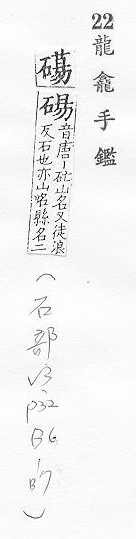 22龍龕手鑑
碭碭音唐-碭山名又徒浪反石也亦山名縣名二
(石部
p32
B6
的)